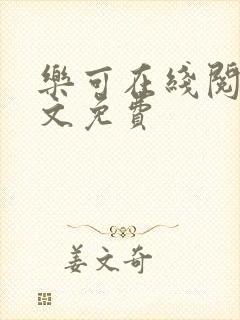 樂可在綫閱
文免費
姜文奇